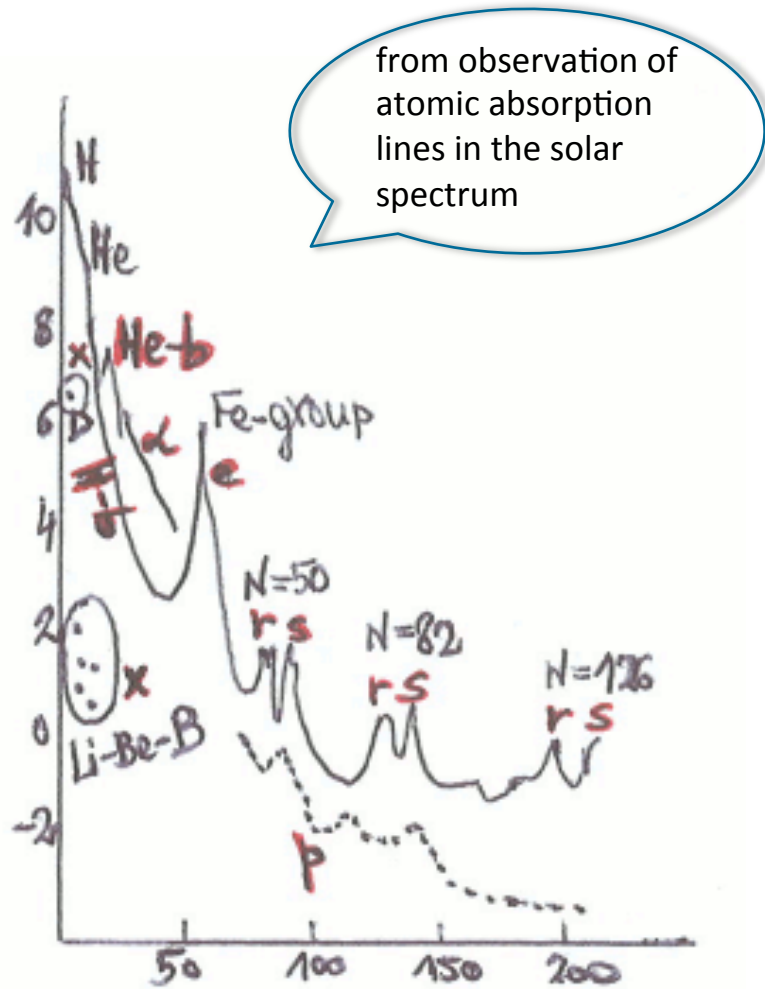 from observation of
atomic absorption
lines in the solar
spectrum
H
10
He
8
x He-b
6
D
Fe-group
α
e
4
N=50
r s
2
N=82
r s
N=126
r s
x
0
Li-Be-B
-2
p
50 100 150 200